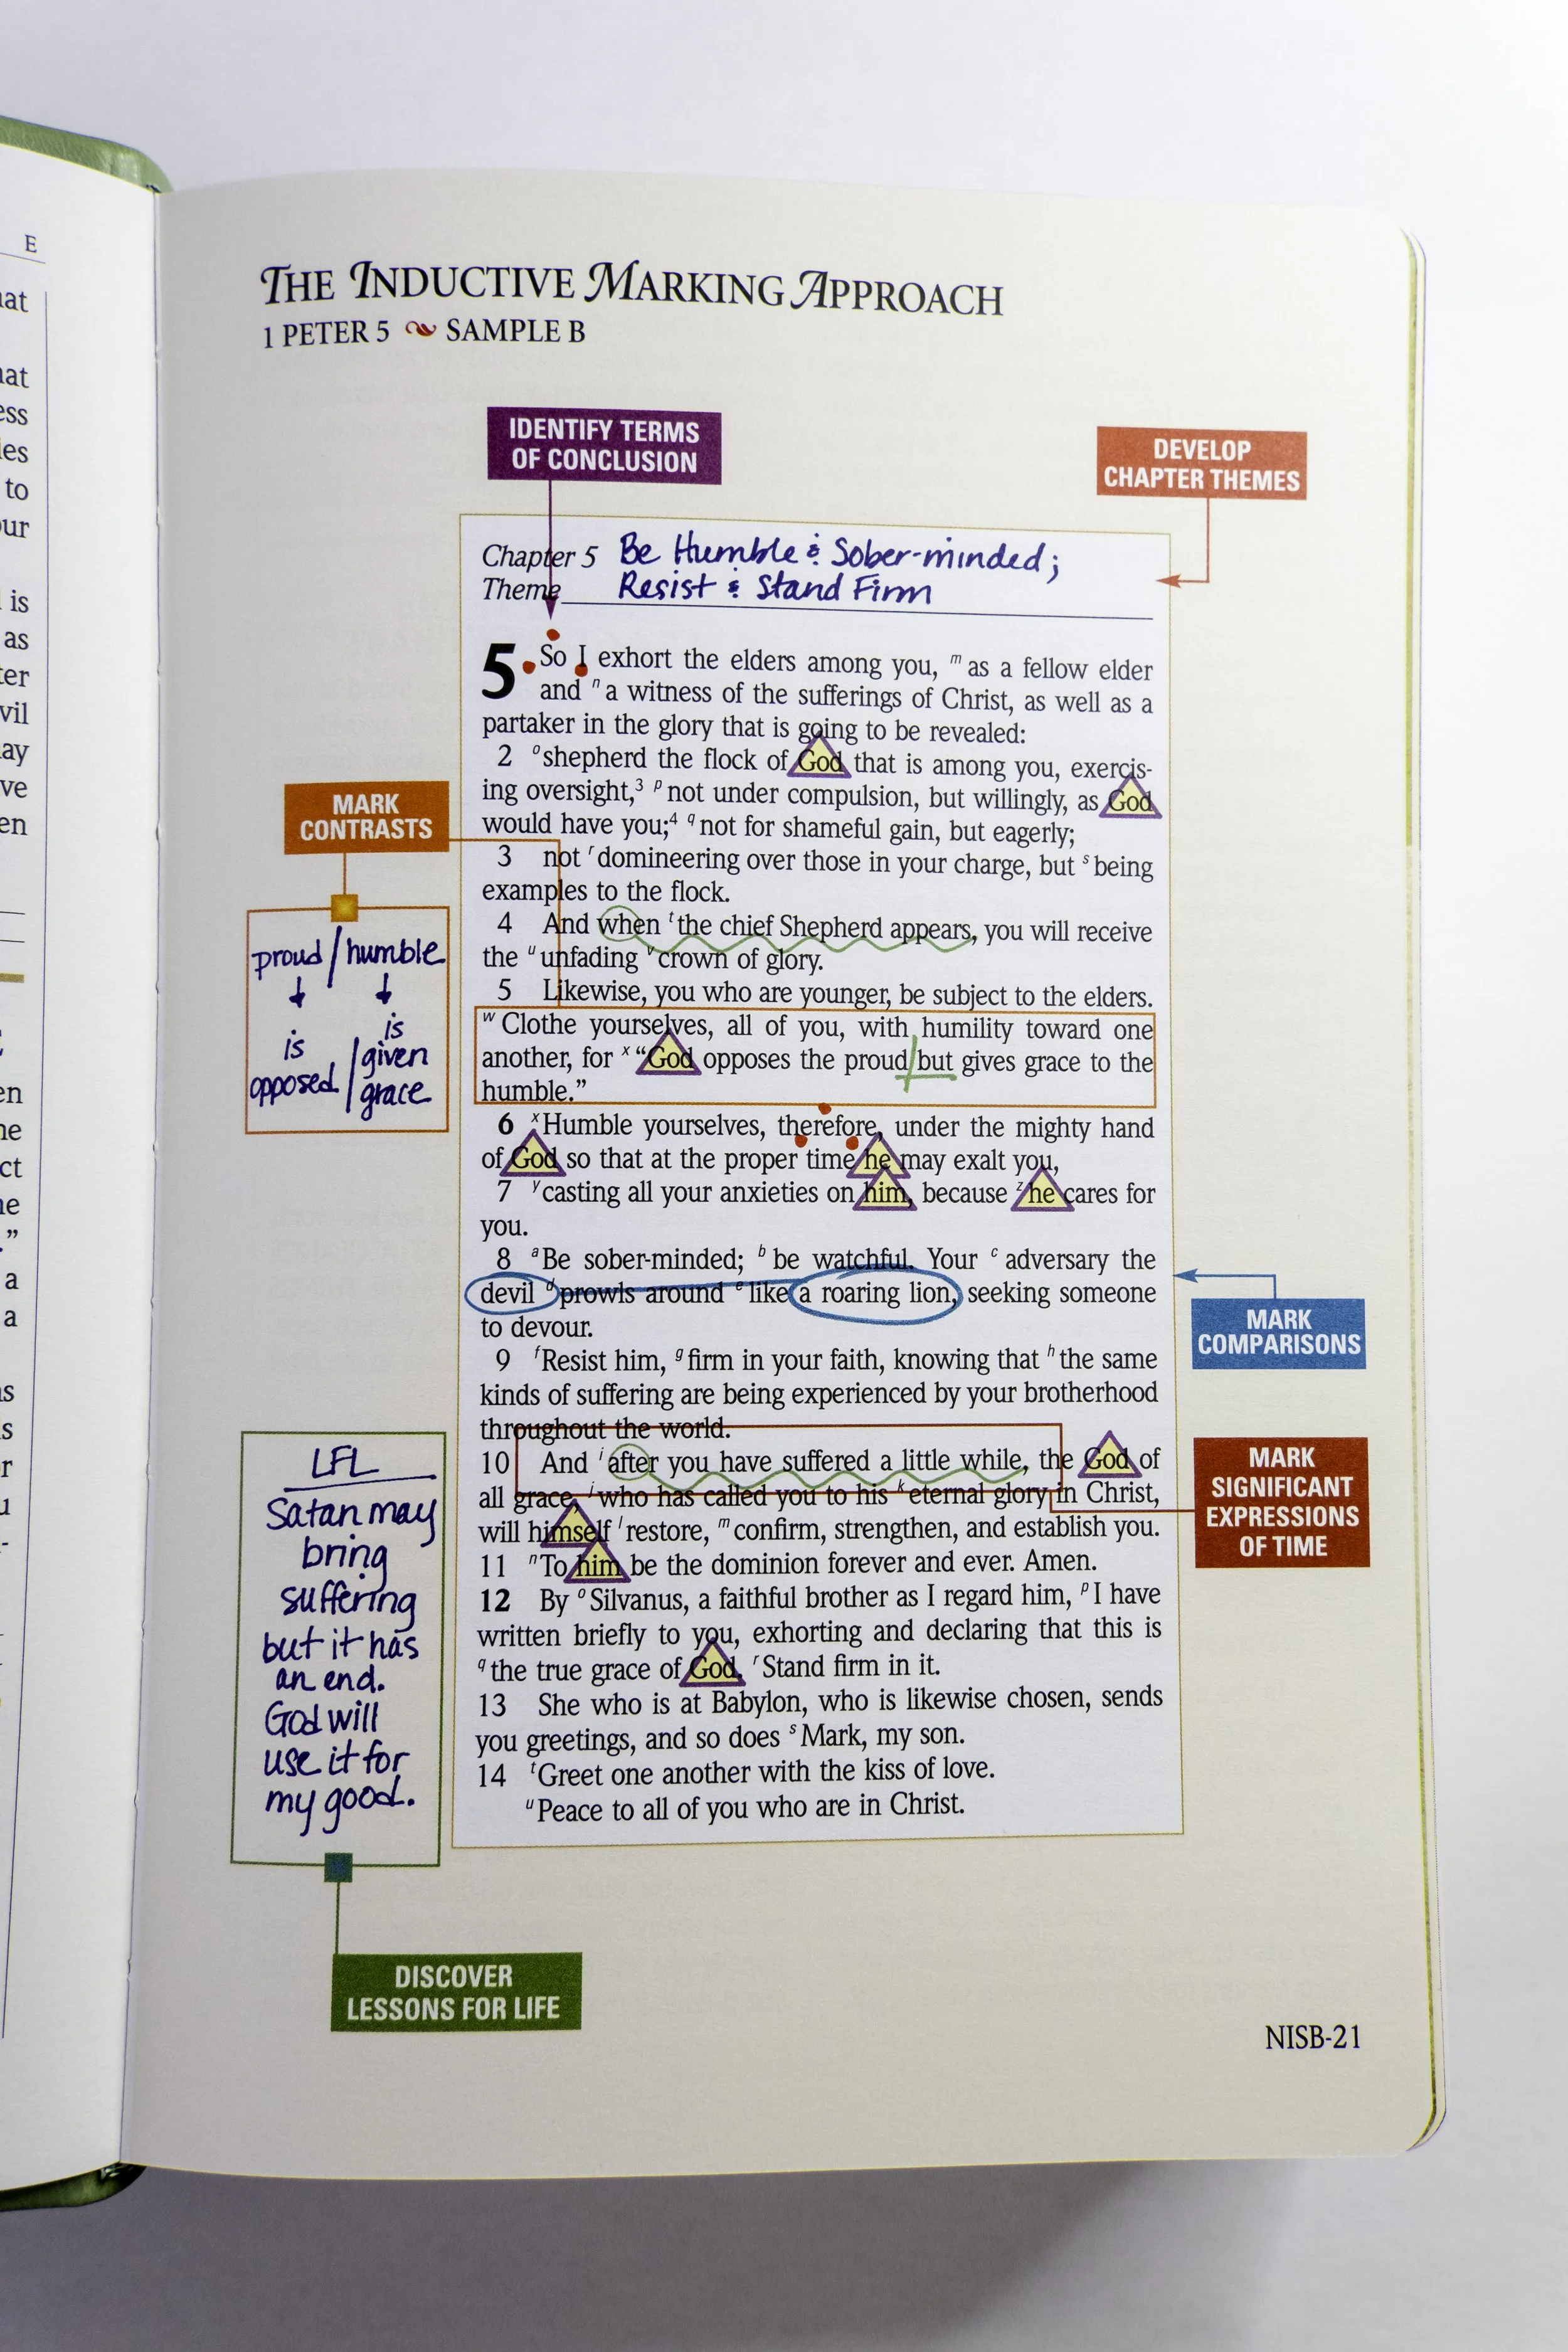 E
THE INDUCTIVE MARKING APPROACH
1 PETER 5 SAMPLE B
IDENTIFY TERMS
OF CONCLUSION
DEVELOP
CHAPTER THEMES
Chapter 5 Be Humble & Sober-minded;
Theme Resist & Stand Firm
5 So I exhort the elders among you, m as a fellow elder
and n a witness of the sufferings of Christ, as well as a
partaker in the glory that is going to be revealed:
2 o shepherd the flock of God that is among you, exercis-
ing oversight,3 p not under compulsion, but willingly, as God
would have you;4 q not for shameful gain, but eagerly;
3 not r domineering over those in your charge, but s being
examples to the flock.
4 And when t the chief Shepherd appears, you will receive
the u unfading v crown of glory.
5 Likewise, you who are younger, be subject to the elders.
w Clothe yourselves, all of you, with humility toward one
another, for x “God opposes the proud but gives grace to the
humble.”
6 x Humble yourselves, therefore, under the mighty hand
of God so that at the proper time he may exalt you,
7 y casting all your anxieties on him, because z he cares for
you.
8 a Be sober-minded; b be watchful. Your c adversary the
devil d prowls around e like a roaring lion, seeking someone
to devour.
9 f Resist him, g firm in your faith, knowing that h the same
kinds of suffering are being experienced by your brotherhood
throughout the world.
10 And i after you have suffered a little while, the God of
all grace, j who has called you to his k eternal glory in Christ,
will himself l restore, m confirm, strengthen, and establish you.
11 n To him be the dominion forever and ever. Amen.
12 By o Silvanus, a faithful brother as I regard him, p I have
written briefly to you, exhorting and declaring that this is
q the true grace of God. r Stand firm in it.
13 She who is at Babylon, who is likewise chosen, sends
you greetings, and so does s Mark, my son.
14 t Greet one another with the kiss of love.
u Peace to all of you who are in Christ.
MARK
CONTRASTS
proud / humble
is opposed / is given grace
MARK
COMPARISONS
MARK
SIGNIFICANT
EXPRESSIONS
OF TIME
LFL
Satan may
bring
suffering
but it has
an end.
God will
use it for
my good.
DISCOVER
LESSONS FOR LIFE
NISB-21